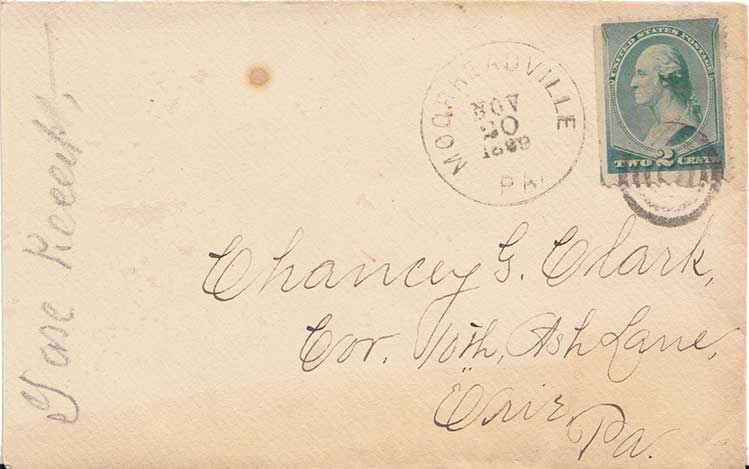 MOORHEADVILLE
NOV
20
1889
PA.
UNITED STATES POSTAGE
TWO 2 CENTS
Chancey G. Clark,
Cor. 10th, Ash Lane,
Erie,
Pa.